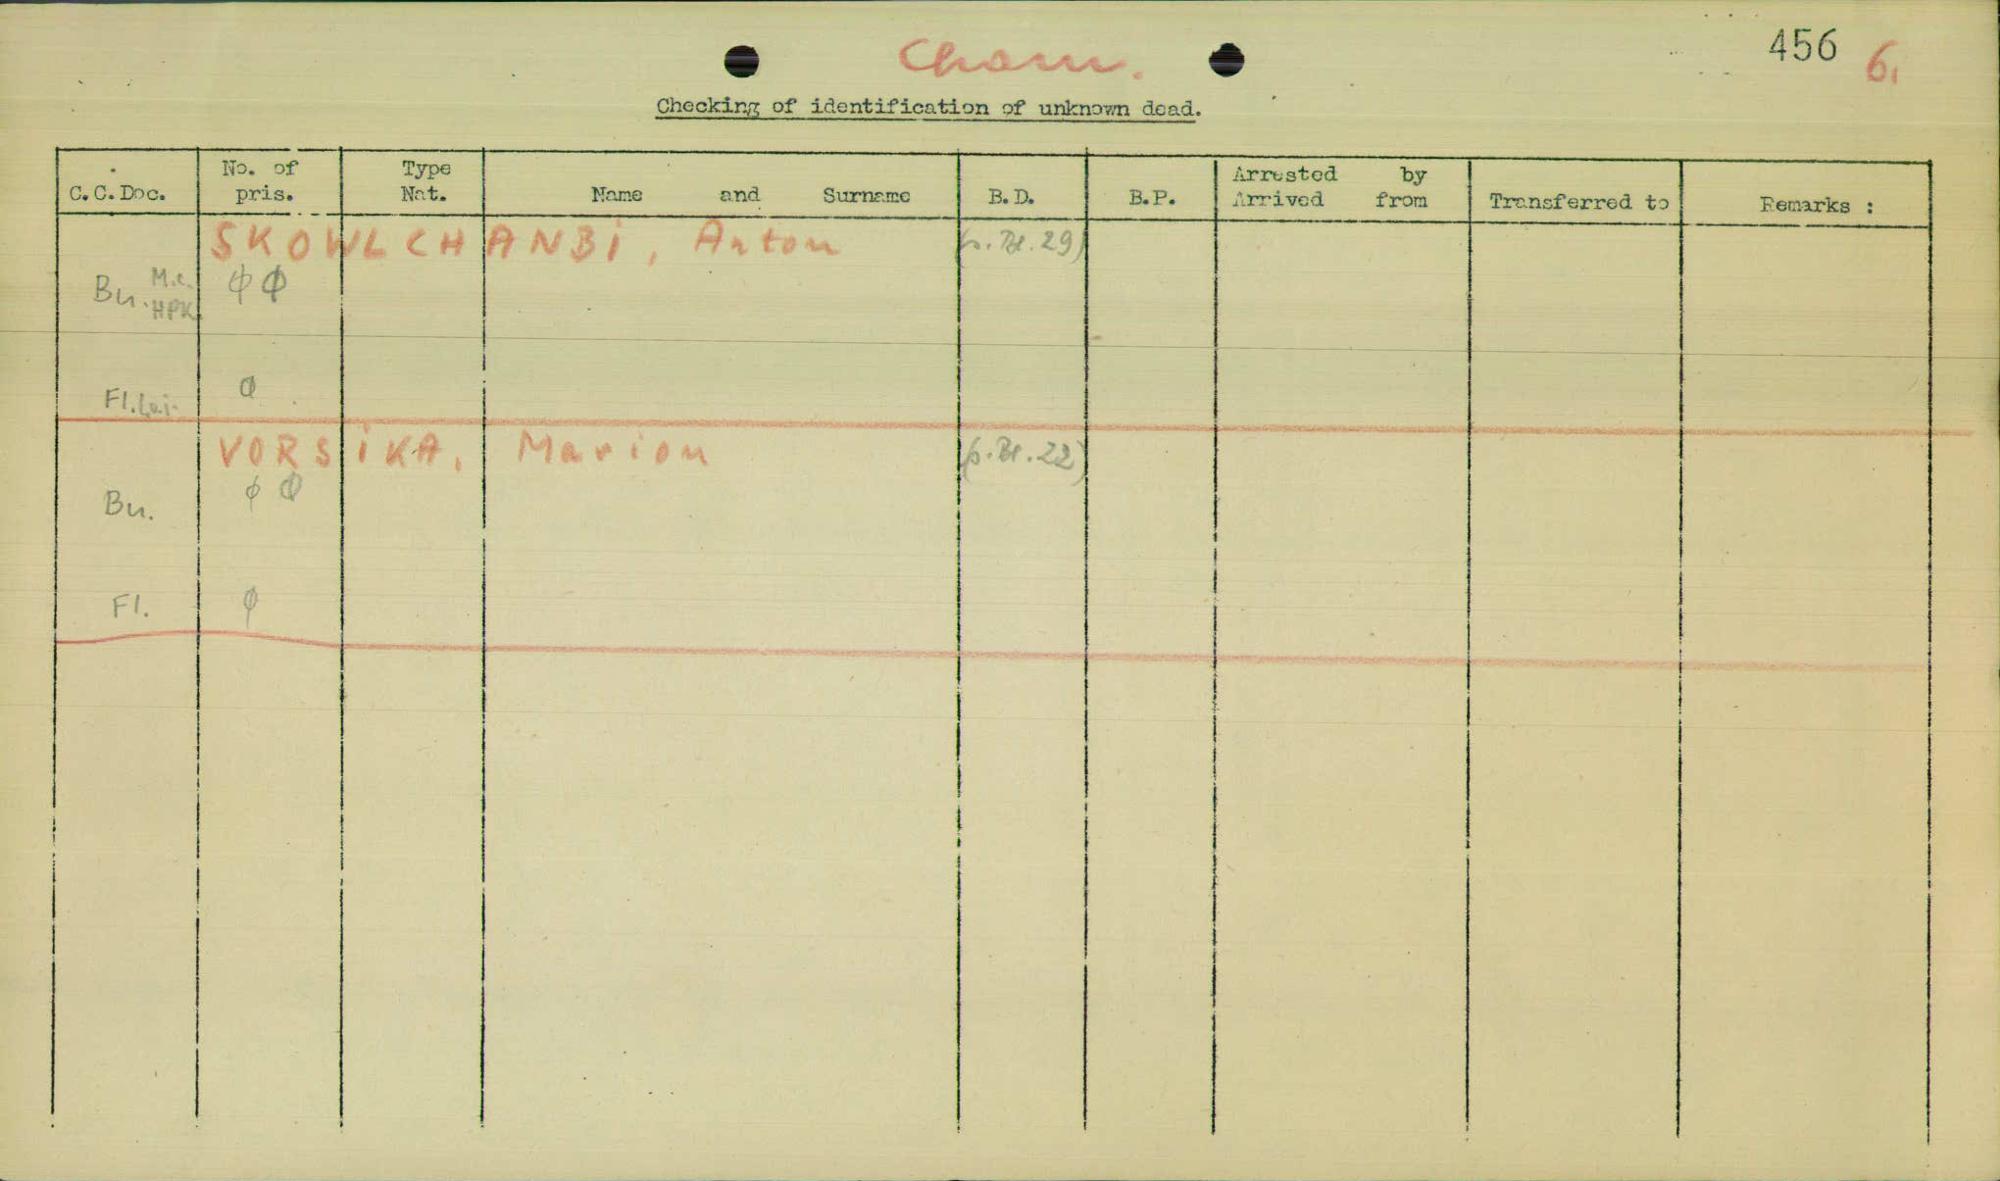 Cham.
456 6.
Checking of identification of unknown dead.
C.C.Doc. No. of pris. Type Nat. Name and Surname B.D. B.P. Arrested by Arrived from Transferred to Remarks :
SKOWLCHANBI, Anton (s. Bl. 29)
Bu. M.c. HPK. φ φ
Fl. φ
VORSIKA, Marion (s. Bl. 22)
Bu. φ φ
Fl. φ